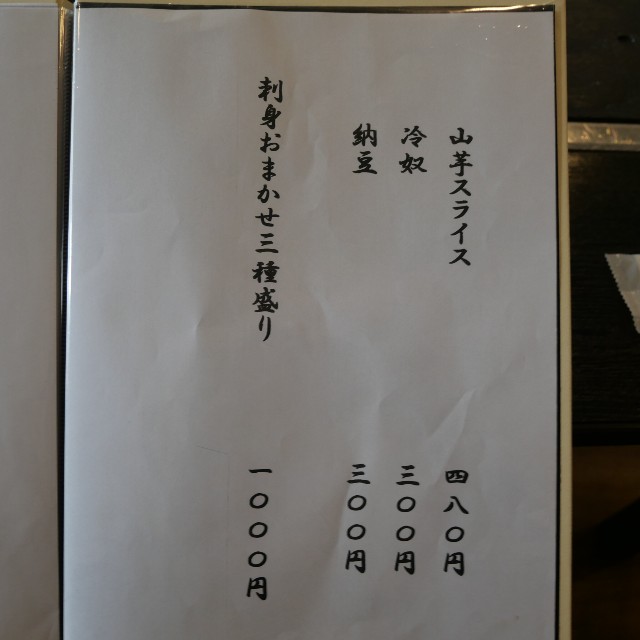 山芋スライス 四八〇円
冷奴 三〇〇円
納豆 三〇〇円
刺身おまかせ三種盛り 一〇〇〇円